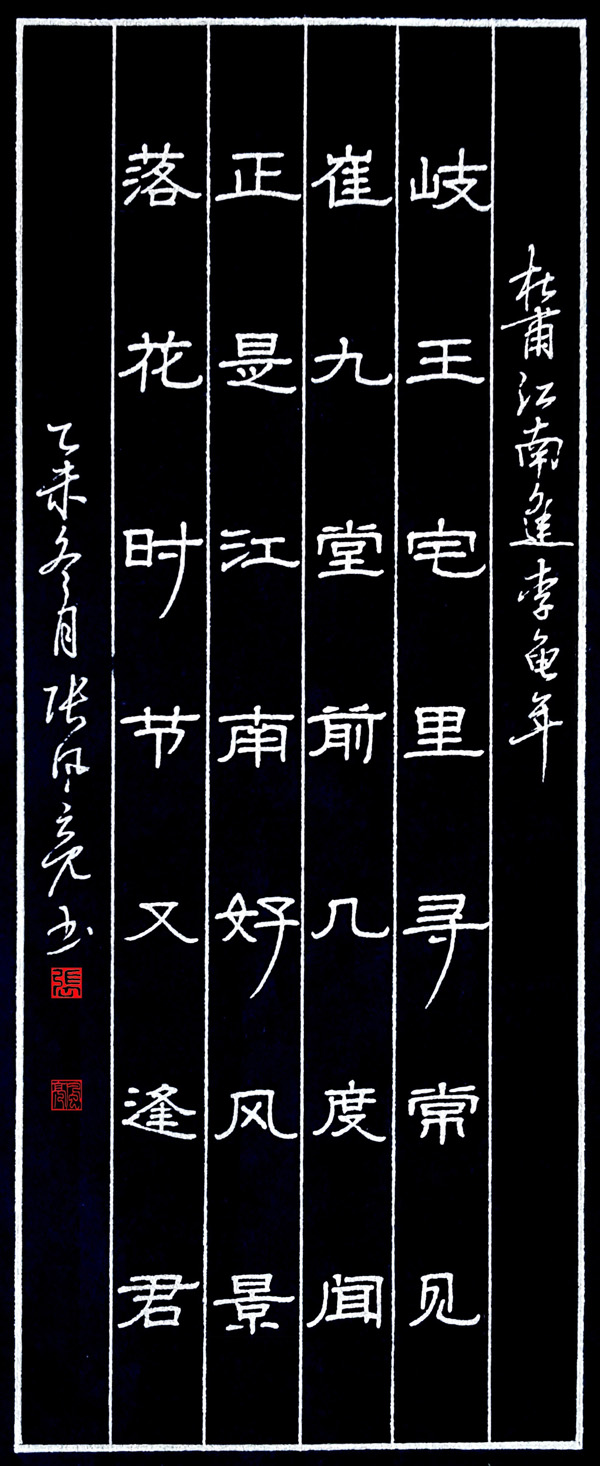 杜甫江南逢李龟年
岐王宅里寻常见
崔九堂前几度闻
正是江南好风景
落花时节又逢君
乙未冬月张风亮书
張